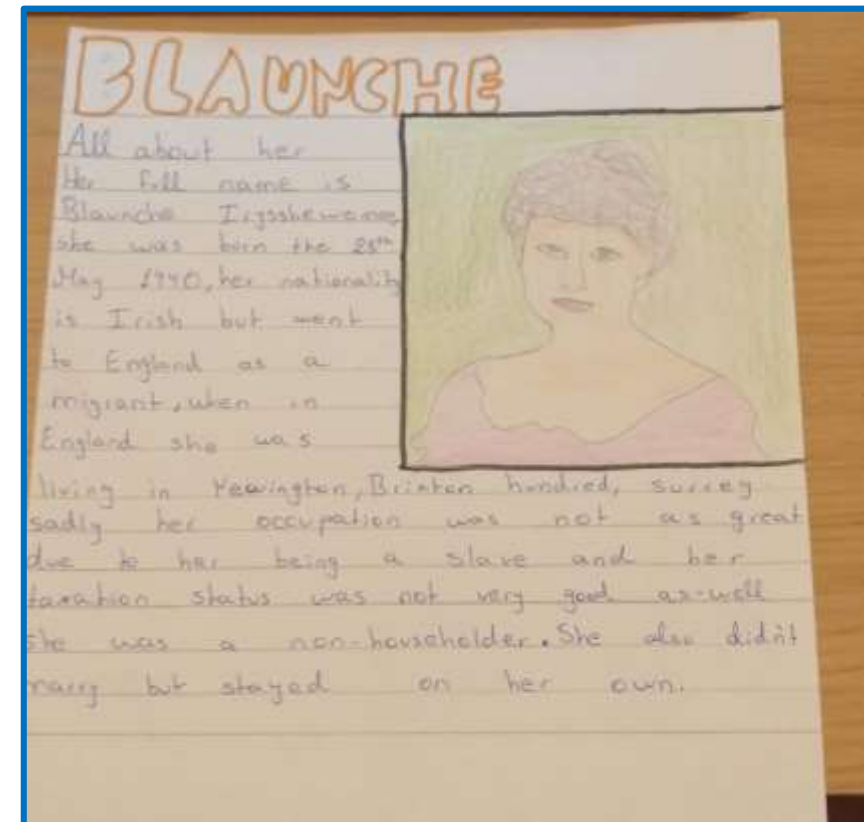 BLAUNCHE
All about her
Her full name is
Blaunche
she was born the 25th
May, her nationality
is Irish but went
to England as a
migrant, when in
England she was
living in Newington, Brixton hundred, surrey
sadly her occupation was not as great
due to her being a slave and her
taxation status was not very good as-well
she was a non-householder. She also didn't
marry but stayed on her own.